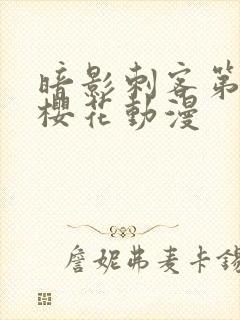 暗影刺客第
櫻花動漫
詹妮弗麦卡錫